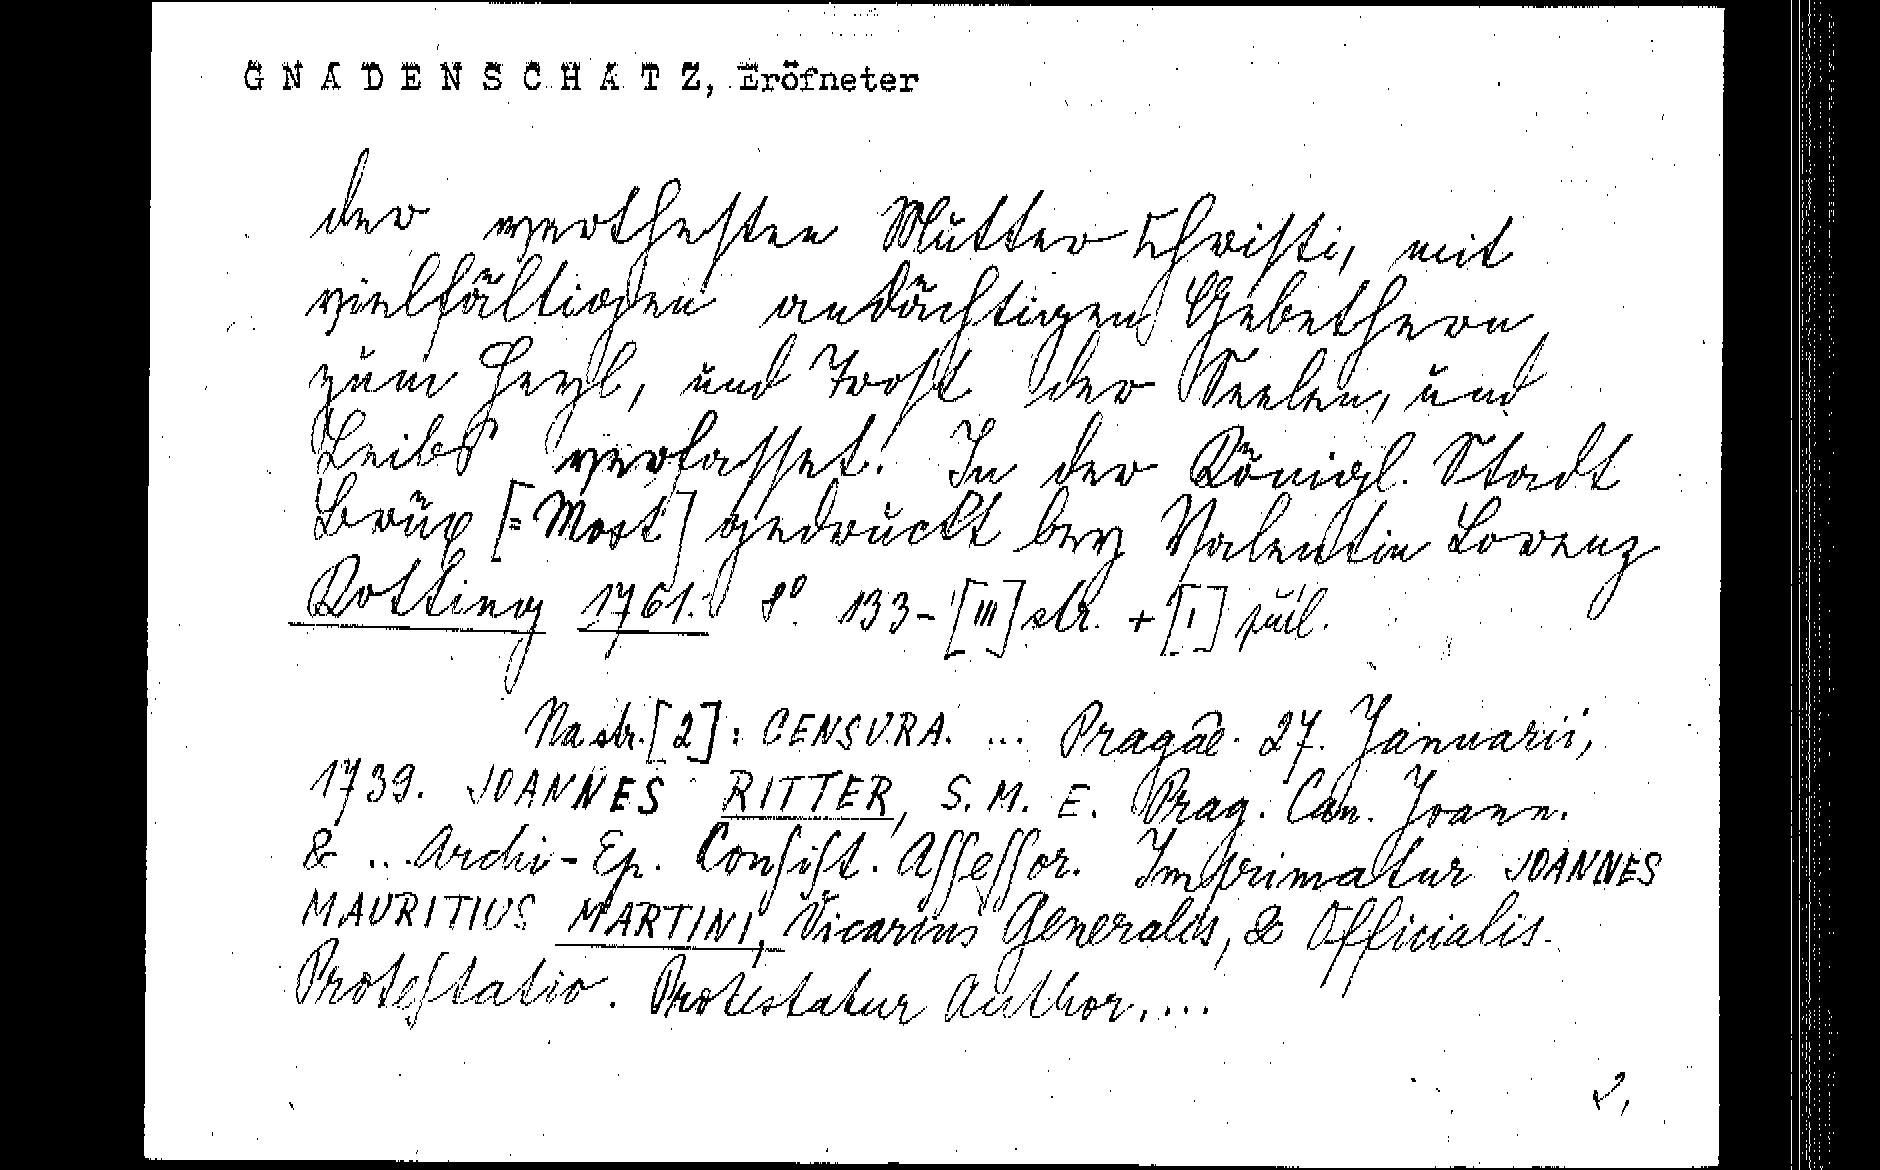 G N A D E N S C H A T Z, Eröfneter
der werthesten Mutter Christi, mit
vielfältigen andächtigen Gebethern
zum Heyl, und Trost der Seelen, und
Leibs verfasset. In der Königl. Stadt
Brüx [= Most] gedruckt bey Valentin Lorenz
Kotting 1761. 8° 133-[III] str. + [I]
Na str. [2]: CENSURA. ... Pragae. 27. Januarii,
1739. JOANNES RITTER, S. M. E. Prag. Can. Joann.
& ... Archi-Ep. Consist. Assessor. Imprimatur JOANNES
MAURITIUS MARTINI, Vicarius Generalis, & Officialis.
Protestatio. Protestatur Author. ...
2,